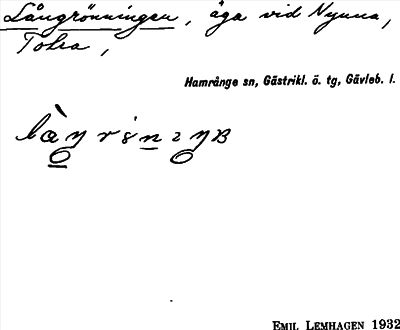 Långrönningen, äga vid Nynna,
Tolva,
Hamrånge sn, Gästrikl. ö. tg, Gävleb. l.
EMIL LEMHAGEN 1932